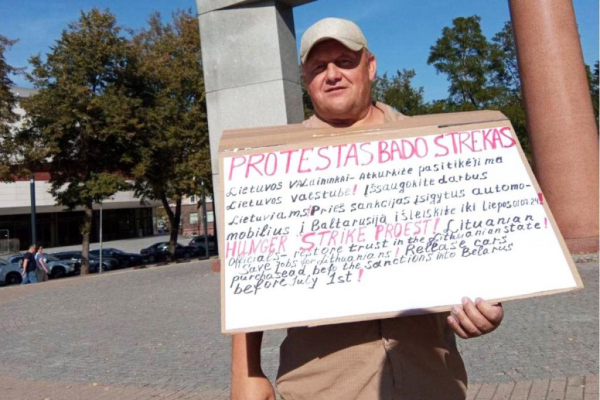 PROTESTAS BADO STREKAS
Lietuvos Valdininkai - Atkurkite pasitikėjimą
Lietuvos valstube! Išsaugokite darbus
Lietuviams! Prieš sankcijas įsigytus automo-
mobilius į Baltarusiją išleiskite iki liepos 01.07.24!
HUNGER STRIKE PROEST! Lithuanian
Officials - restore trust in the Lithuanian state!
save jobs for Lithuanians! Release cars
purchasead before the sanctions into Belarus
before July 1st!